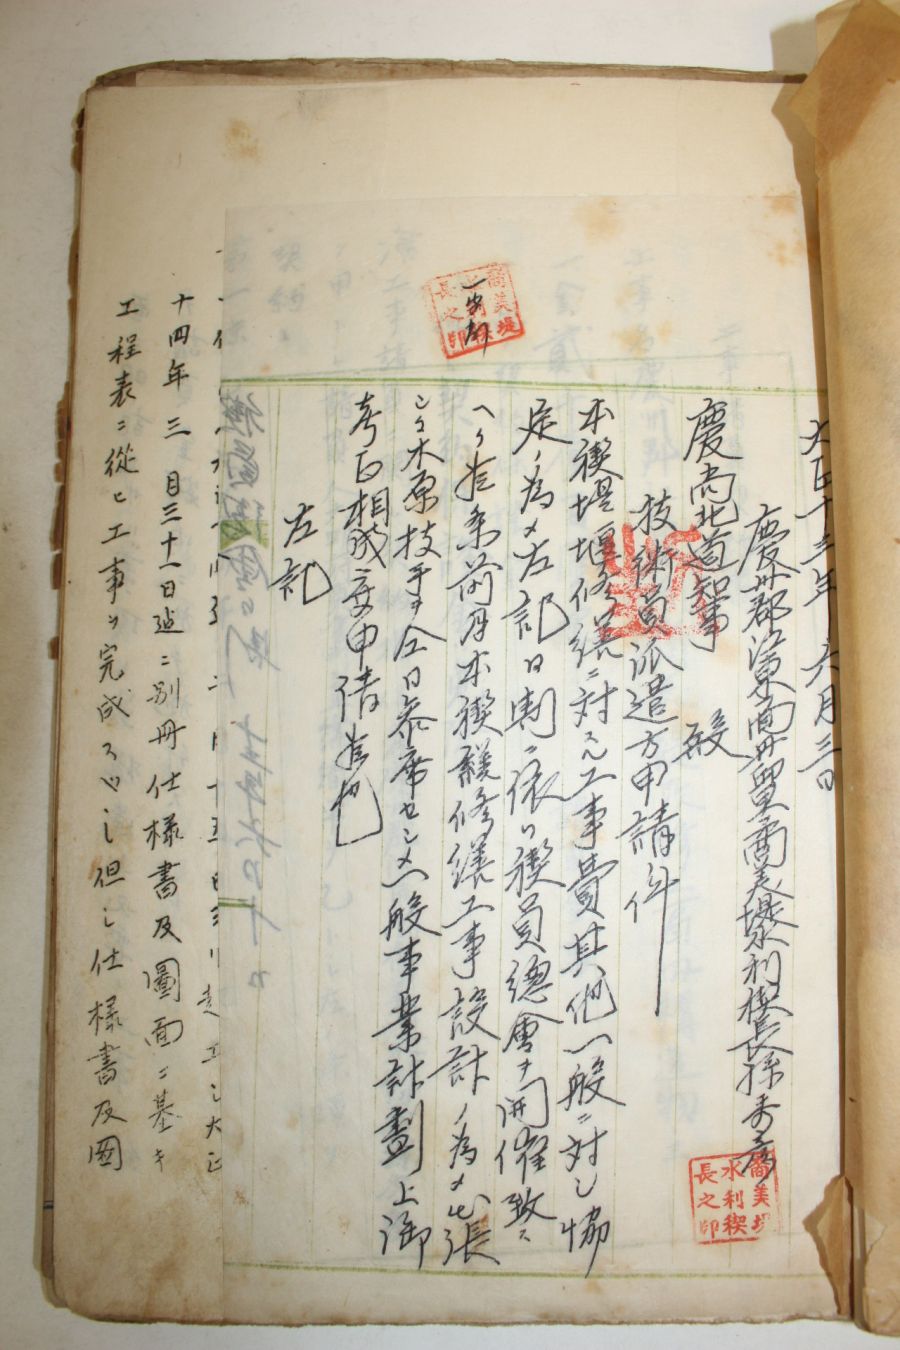 大正十三年六月三日
慶州郡江東面 里商美堤水利稧長孫秀彦
慶尚北道知事 殿
技術員派遣方申請ノ件
本稧堤堰修繕ニ対スル工事費其他一般ニ対シ協
定ノ為メ左記日割ニ依リ稧員總會ヲ開催致ス
ヘク候条前月本稧 修繕工事設計ノ為メ出張
シタ木原技手ヲ仝日参席セシメ一般事業計劃上御
考正相成度申請候也
左記
商美堤水利稧長之印
十四年三月三十一日迠ニ別冊仕様書及圖面ニ基キ
工程表ニ從ヒ工事ヲ完成スヘシ但シ仕様書及圖